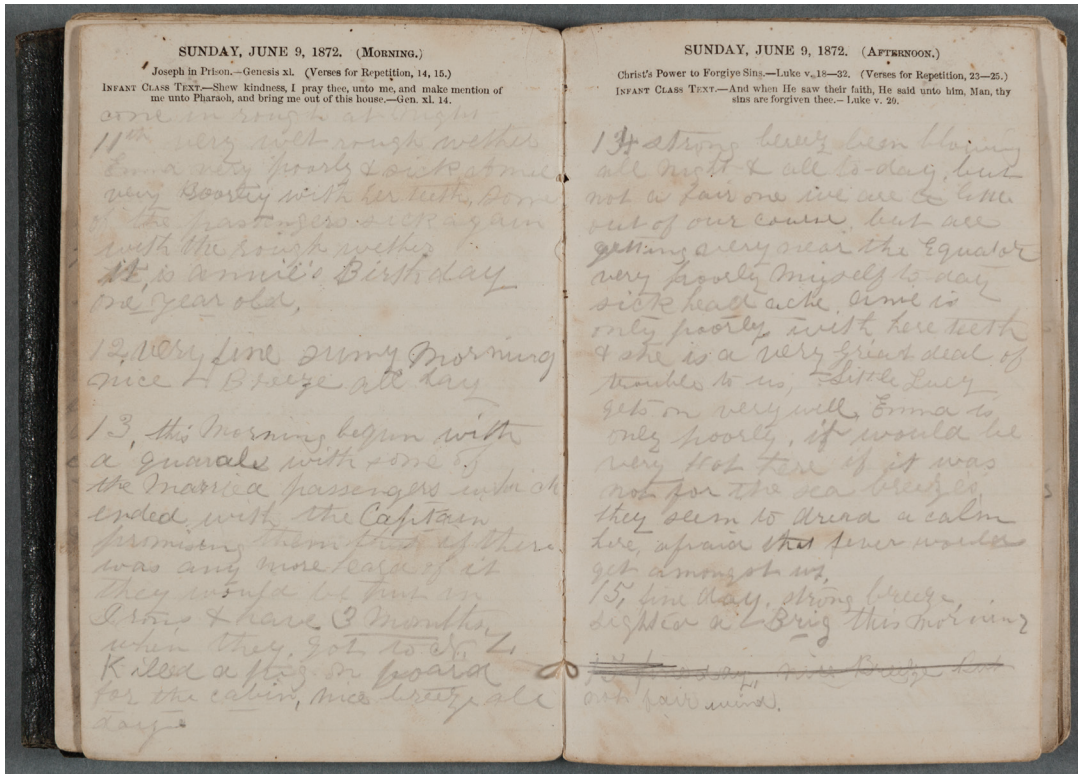 SUNDAY, JUNE 9, 1872. (MORNING.)
Joseph in Prison.—Genesis xl. (Verses for Repetition, 14, 15.)
INFANT CLASS TEXT.—Shew kindness, I pray thee, unto me, and make mention of
me unto Pharaoh, and bring me out of this house.—Gen. xl. 14.
come in rough at Night
11th very wet rough wether
Emma very poorly & sick
very Poorley with her teeth, some
of the passengers sick again
with the rough wether
it is annie's Birthday
one year old,
12, very fine sunny Morning
nice Breeze all day
13, this Morning begun with
a quarale with some of
the Married passengers which
ended with the Captain
promising them that if there
was any more heard of it
they would be put in
Irons & have 3 Months,
when they got to N, Z,
Killed a pig on board
for the cabin, nice breeze all
day
SUNDAY, JUNE 9, 1872. (AFTERNOON.)
Christ's Power to Forgive Sins.—Luke v. 18—32. (Verses for Repetition, 23—25.)
INFANT CLASS TEXT.—And when He saw their faith, He said unto him, Man, thy
sins are forgiven thee.—Luke v. 20.
14 strong breez been blowing
all Night & all to-day, but
not a fair one we are a little
out of our course but are
getting very near the Equator
very poorly Myself to day
sick head ache, is
only poorly with here teeth
& she is a very great deal of
trouble to us, Little Lucy
gets on very well, Emma is
only poorly, it would be
very Hot here if it was
not for the sea breezes,
they seem to dread a calm
here, afraid that fever would
get amongst us,
15, fine day, strong breeze,
sighted a Brig this morning
nice Breeze but
not fair wind.